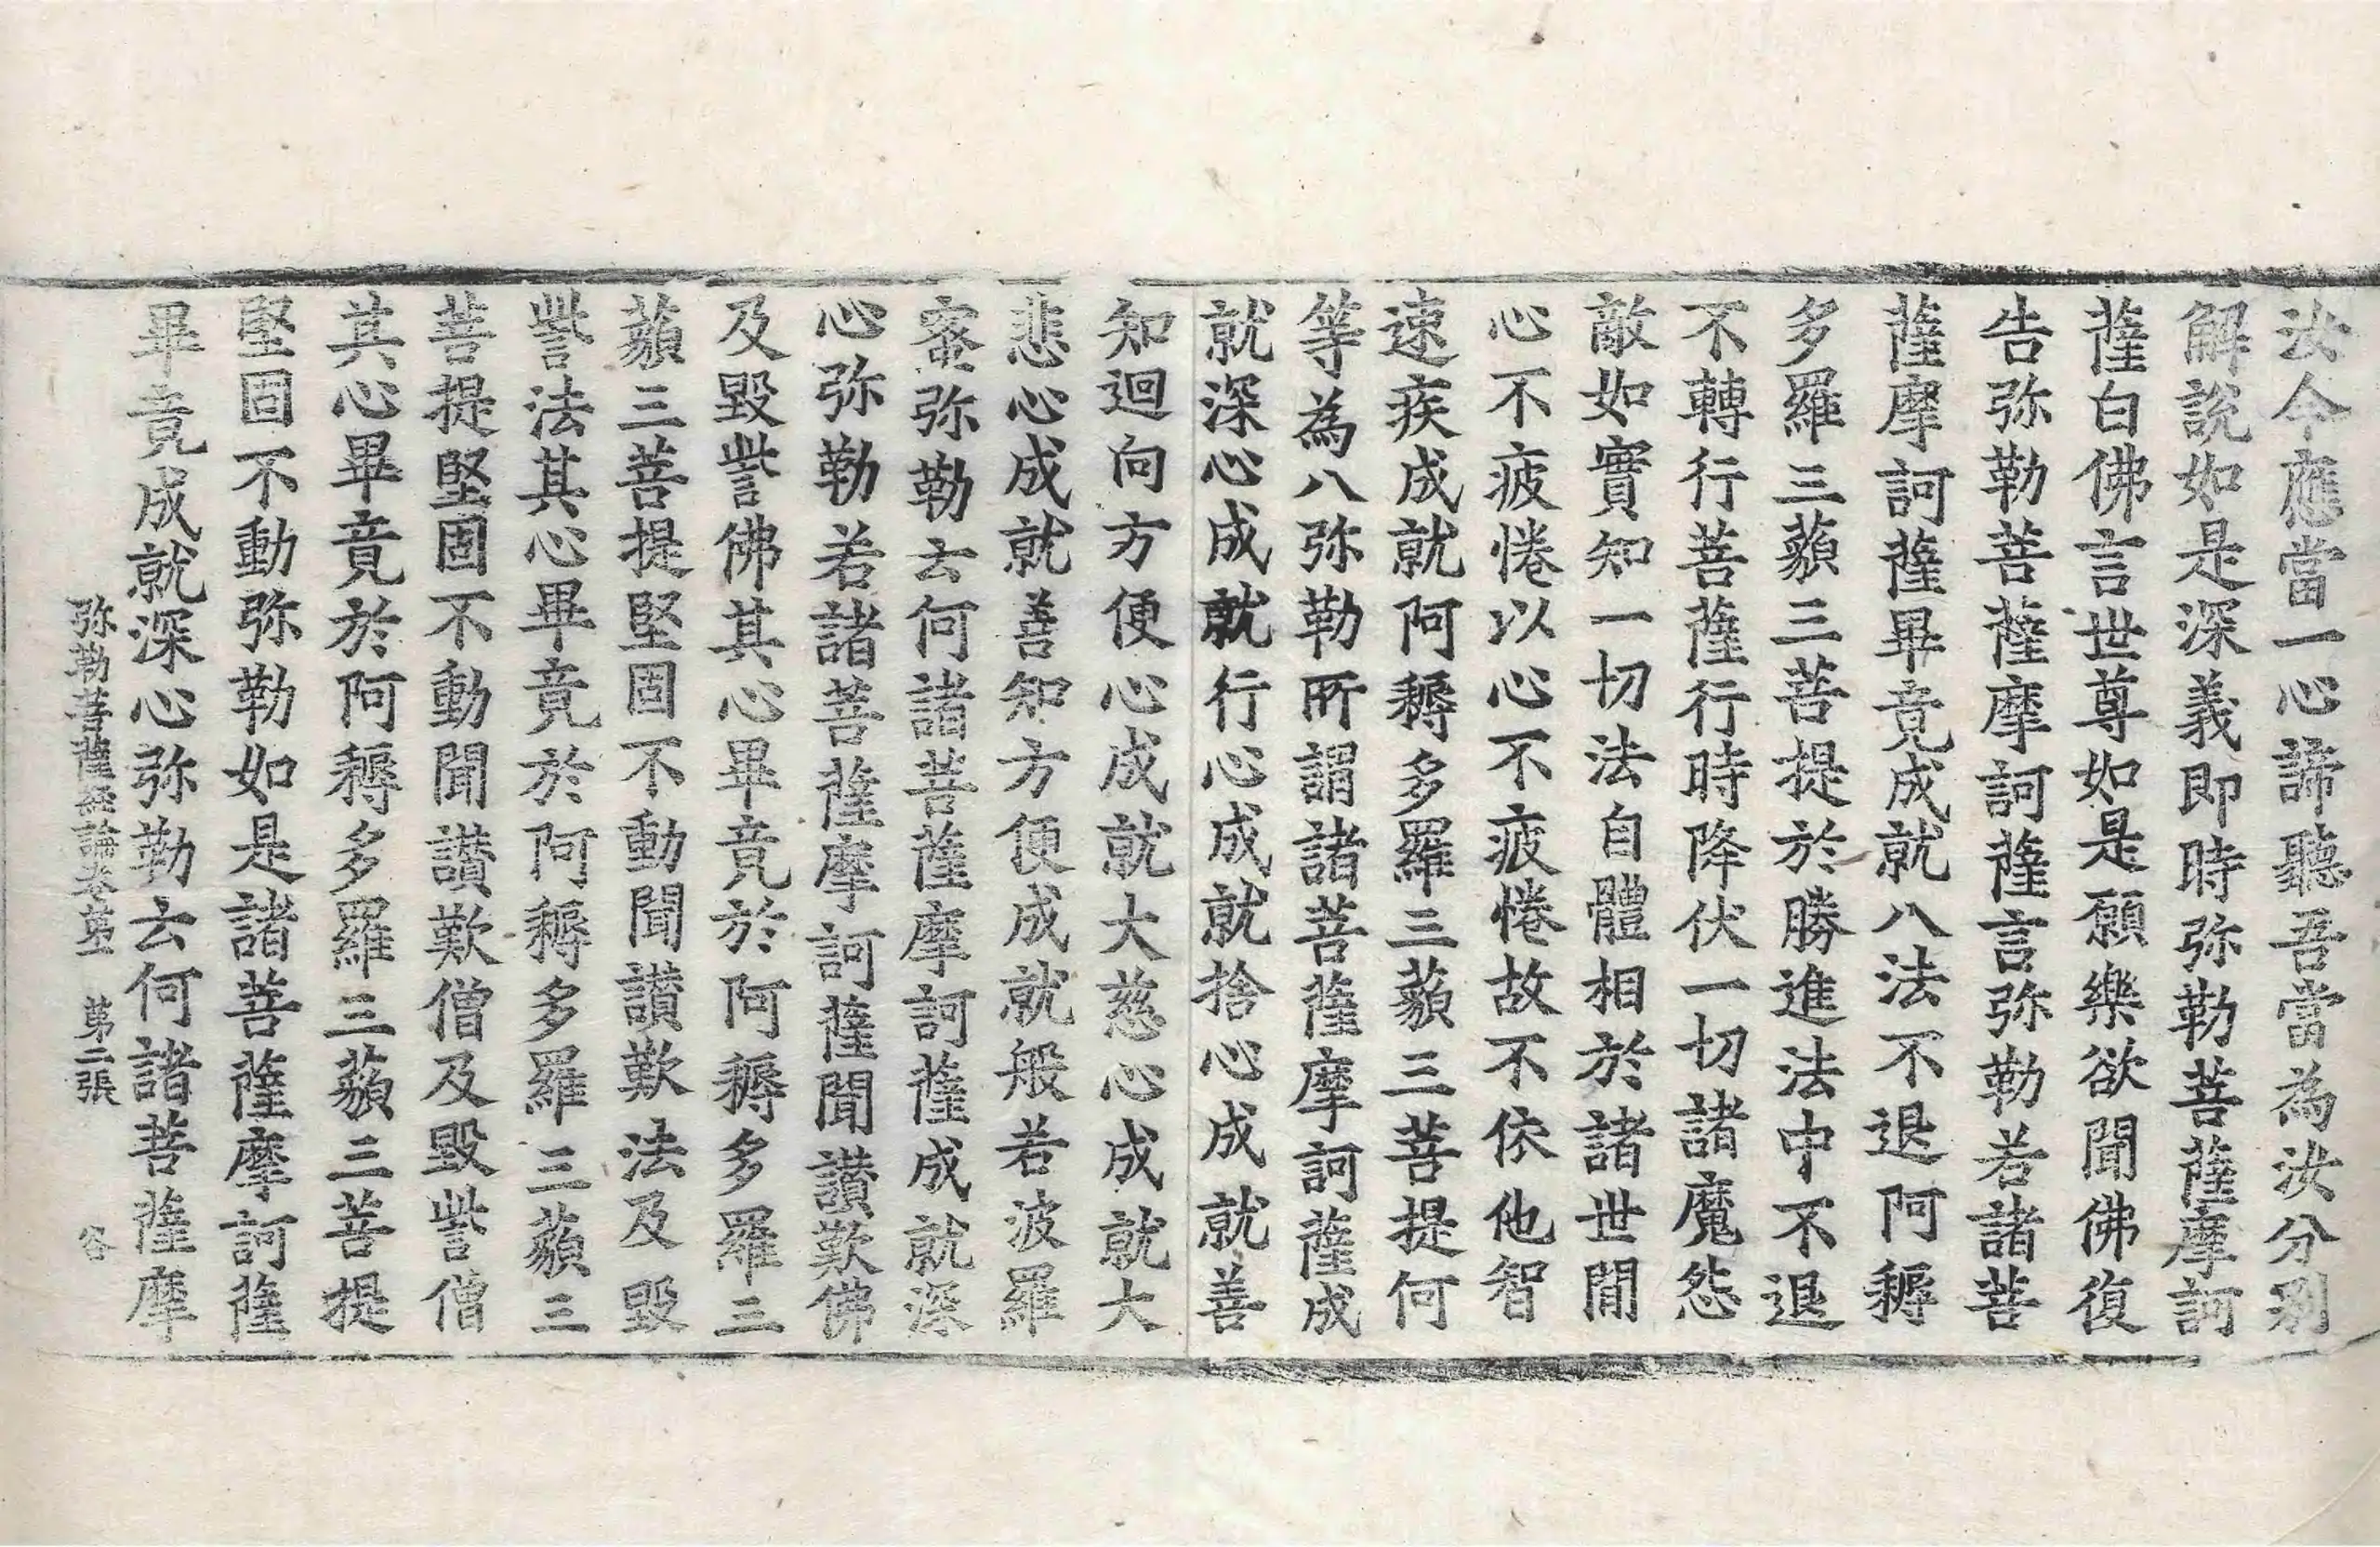 汝今應當一心諦聽吾當為汝分別
解說如是深義即時弥勒菩薩摩訶
薩白佛言世尊如是願樂欲聞佛復
告弥勒菩薩摩訶薩言弥勒若諸菩
薩摩訶薩畢竟成就八法不退阿耨
多羅三藐三菩提於勝進法中不退
不轉行菩薩行時降伏一切諸魔怨
敵如實知一切法自體相於諸世間
心不疲惓以心不疲惓故不依他智
速疾成就阿耨多羅三藐三菩提何
等為八弥勒所謂諸菩薩摩訶薩成
就深心成就行心成就捨心成就善
知迴向方便心成就大慈心成就大
悲心成就善知方便成就般若波羅
蜜弥勒云何諸菩薩摩訶薩成就深
心弥勒若諸菩薩摩訶薩聞讃歎佛
及毀訾佛其心畢竟於阿耨多羅三
藐三菩提堅固不動聞讃歎法及毀
訾法其心畢竟於阿耨多羅三藐三
菩提堅固不動聞讃歎僧及毀訾僧
其心畢竟於阿耨多羅三藐三菩提
堅固不動弥勒如是諸菩薩摩訶薩
畢竟成就深心弥勒云何諸菩薩摩
弥勒菩薩經論卷第一 第二張 容